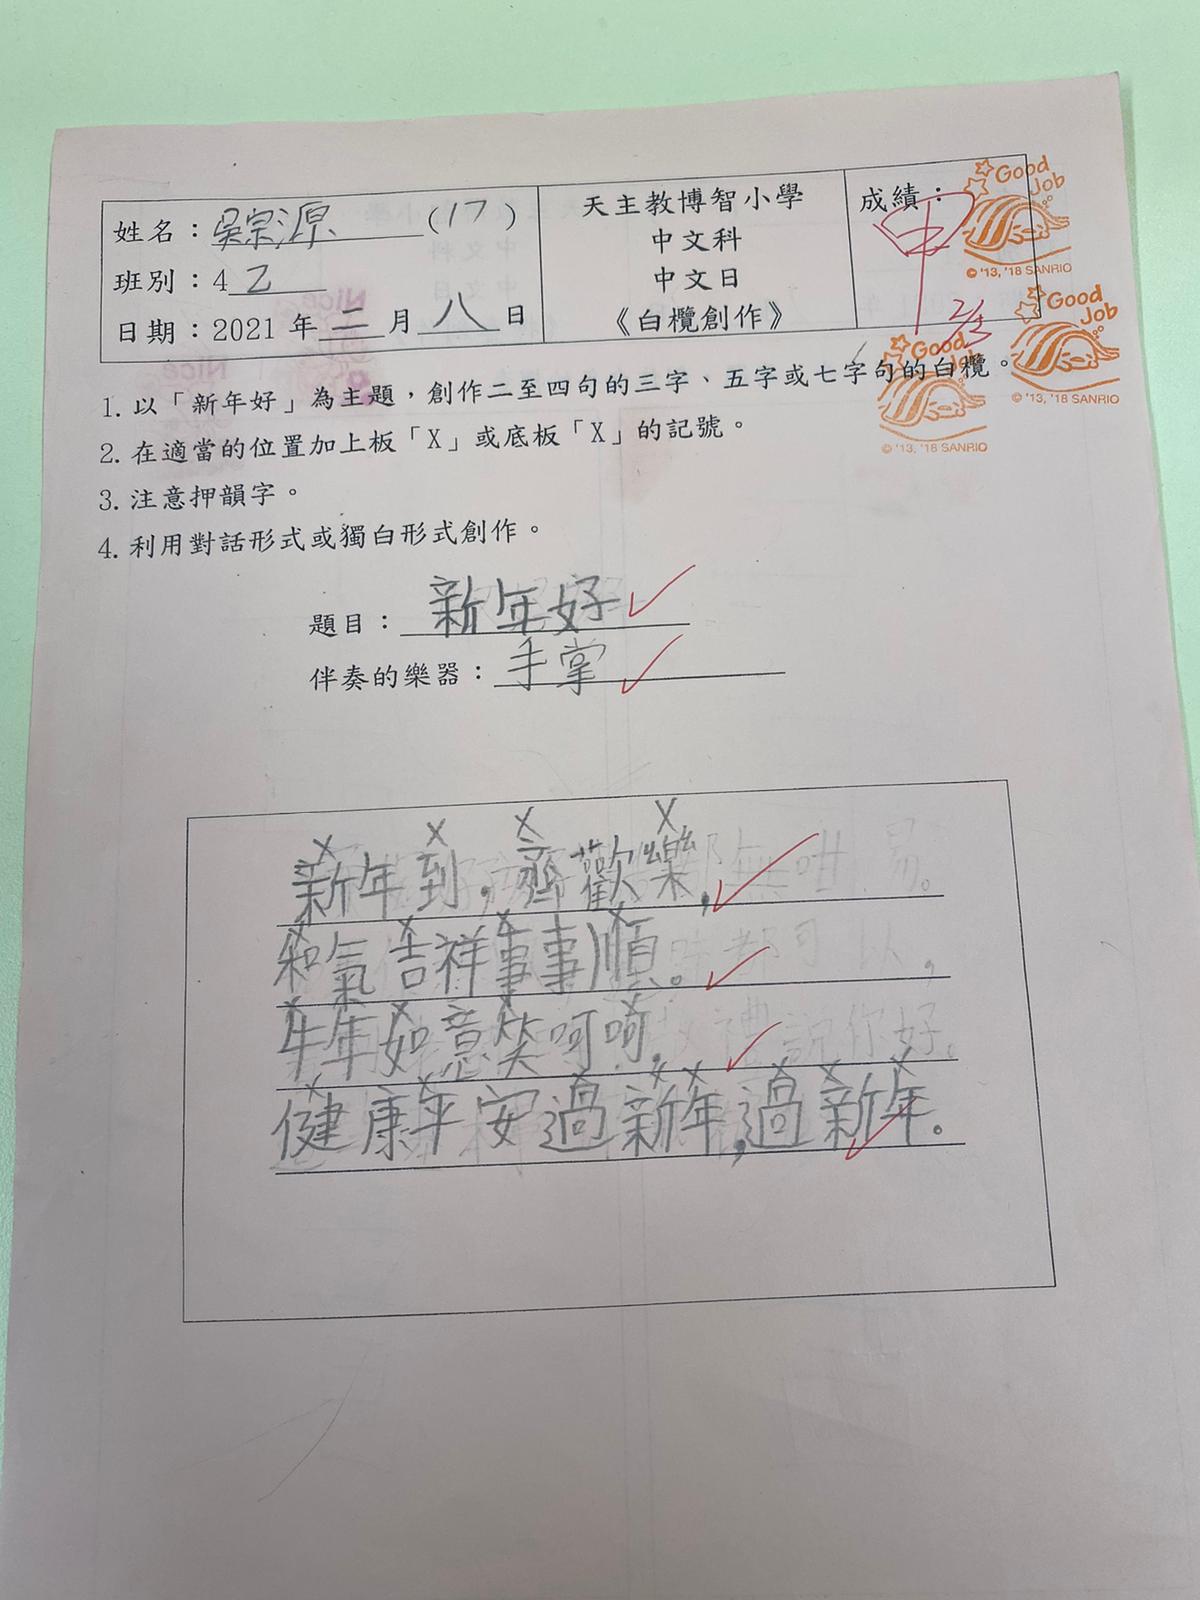 姓名：吳宗源(17)
班別：4乙
日期：2021年二月八日
天主教博智小學
中文科
中文日
《白欖創作》
成績：中
Good Job
© '13, '18 SANRIO
Good Job
© '13, '18 SANRIO
Good Job
© '13, '18 SANRIO
1. 以「新年好」為主題，創作二至四句的三字、五字或七字句的白欖。
2. 在適當的位置加上板「X」或底板「X」的記號。
3. 注意押韻字。
4. 利用對話形式或獨白形式創作。
題目：新年好
伴奏的樂器：手掌
X X X X
新年到，齊歡樂，
X X X X
和氣吉祥事事順。
X X X X
牛年如意笑呵呵，
X X X X X X X X
健康平安過新年，過新年。